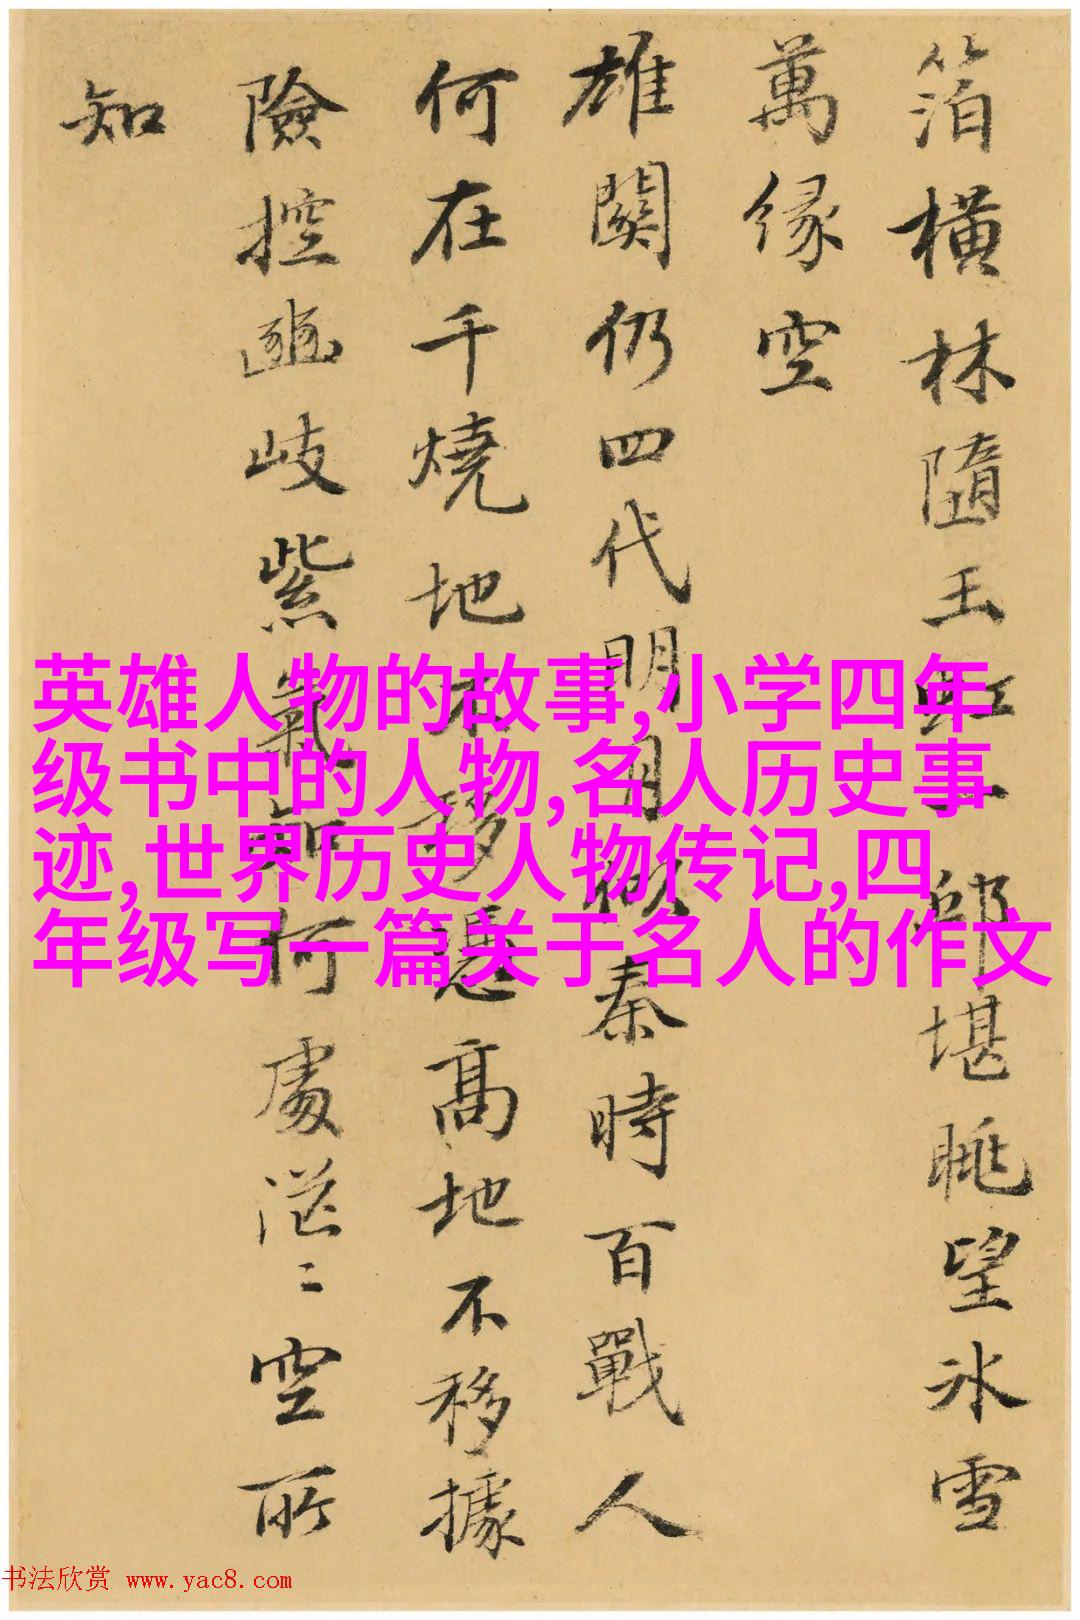 箔橫林隨玉虹一邱堪眺望冰雪
萬緣空
雄關仍四代明月似秦時百戰人
何在千燒地不移憑高地不移據
險控豳岐紫氣知何處茫〻空所
知
英雄人物的故事,小学四年
级书中的人物,名人历史事
迹,世界历史人物传记,四
年级写一篇关于名人的作文
书法欣赏 www.yac8.com